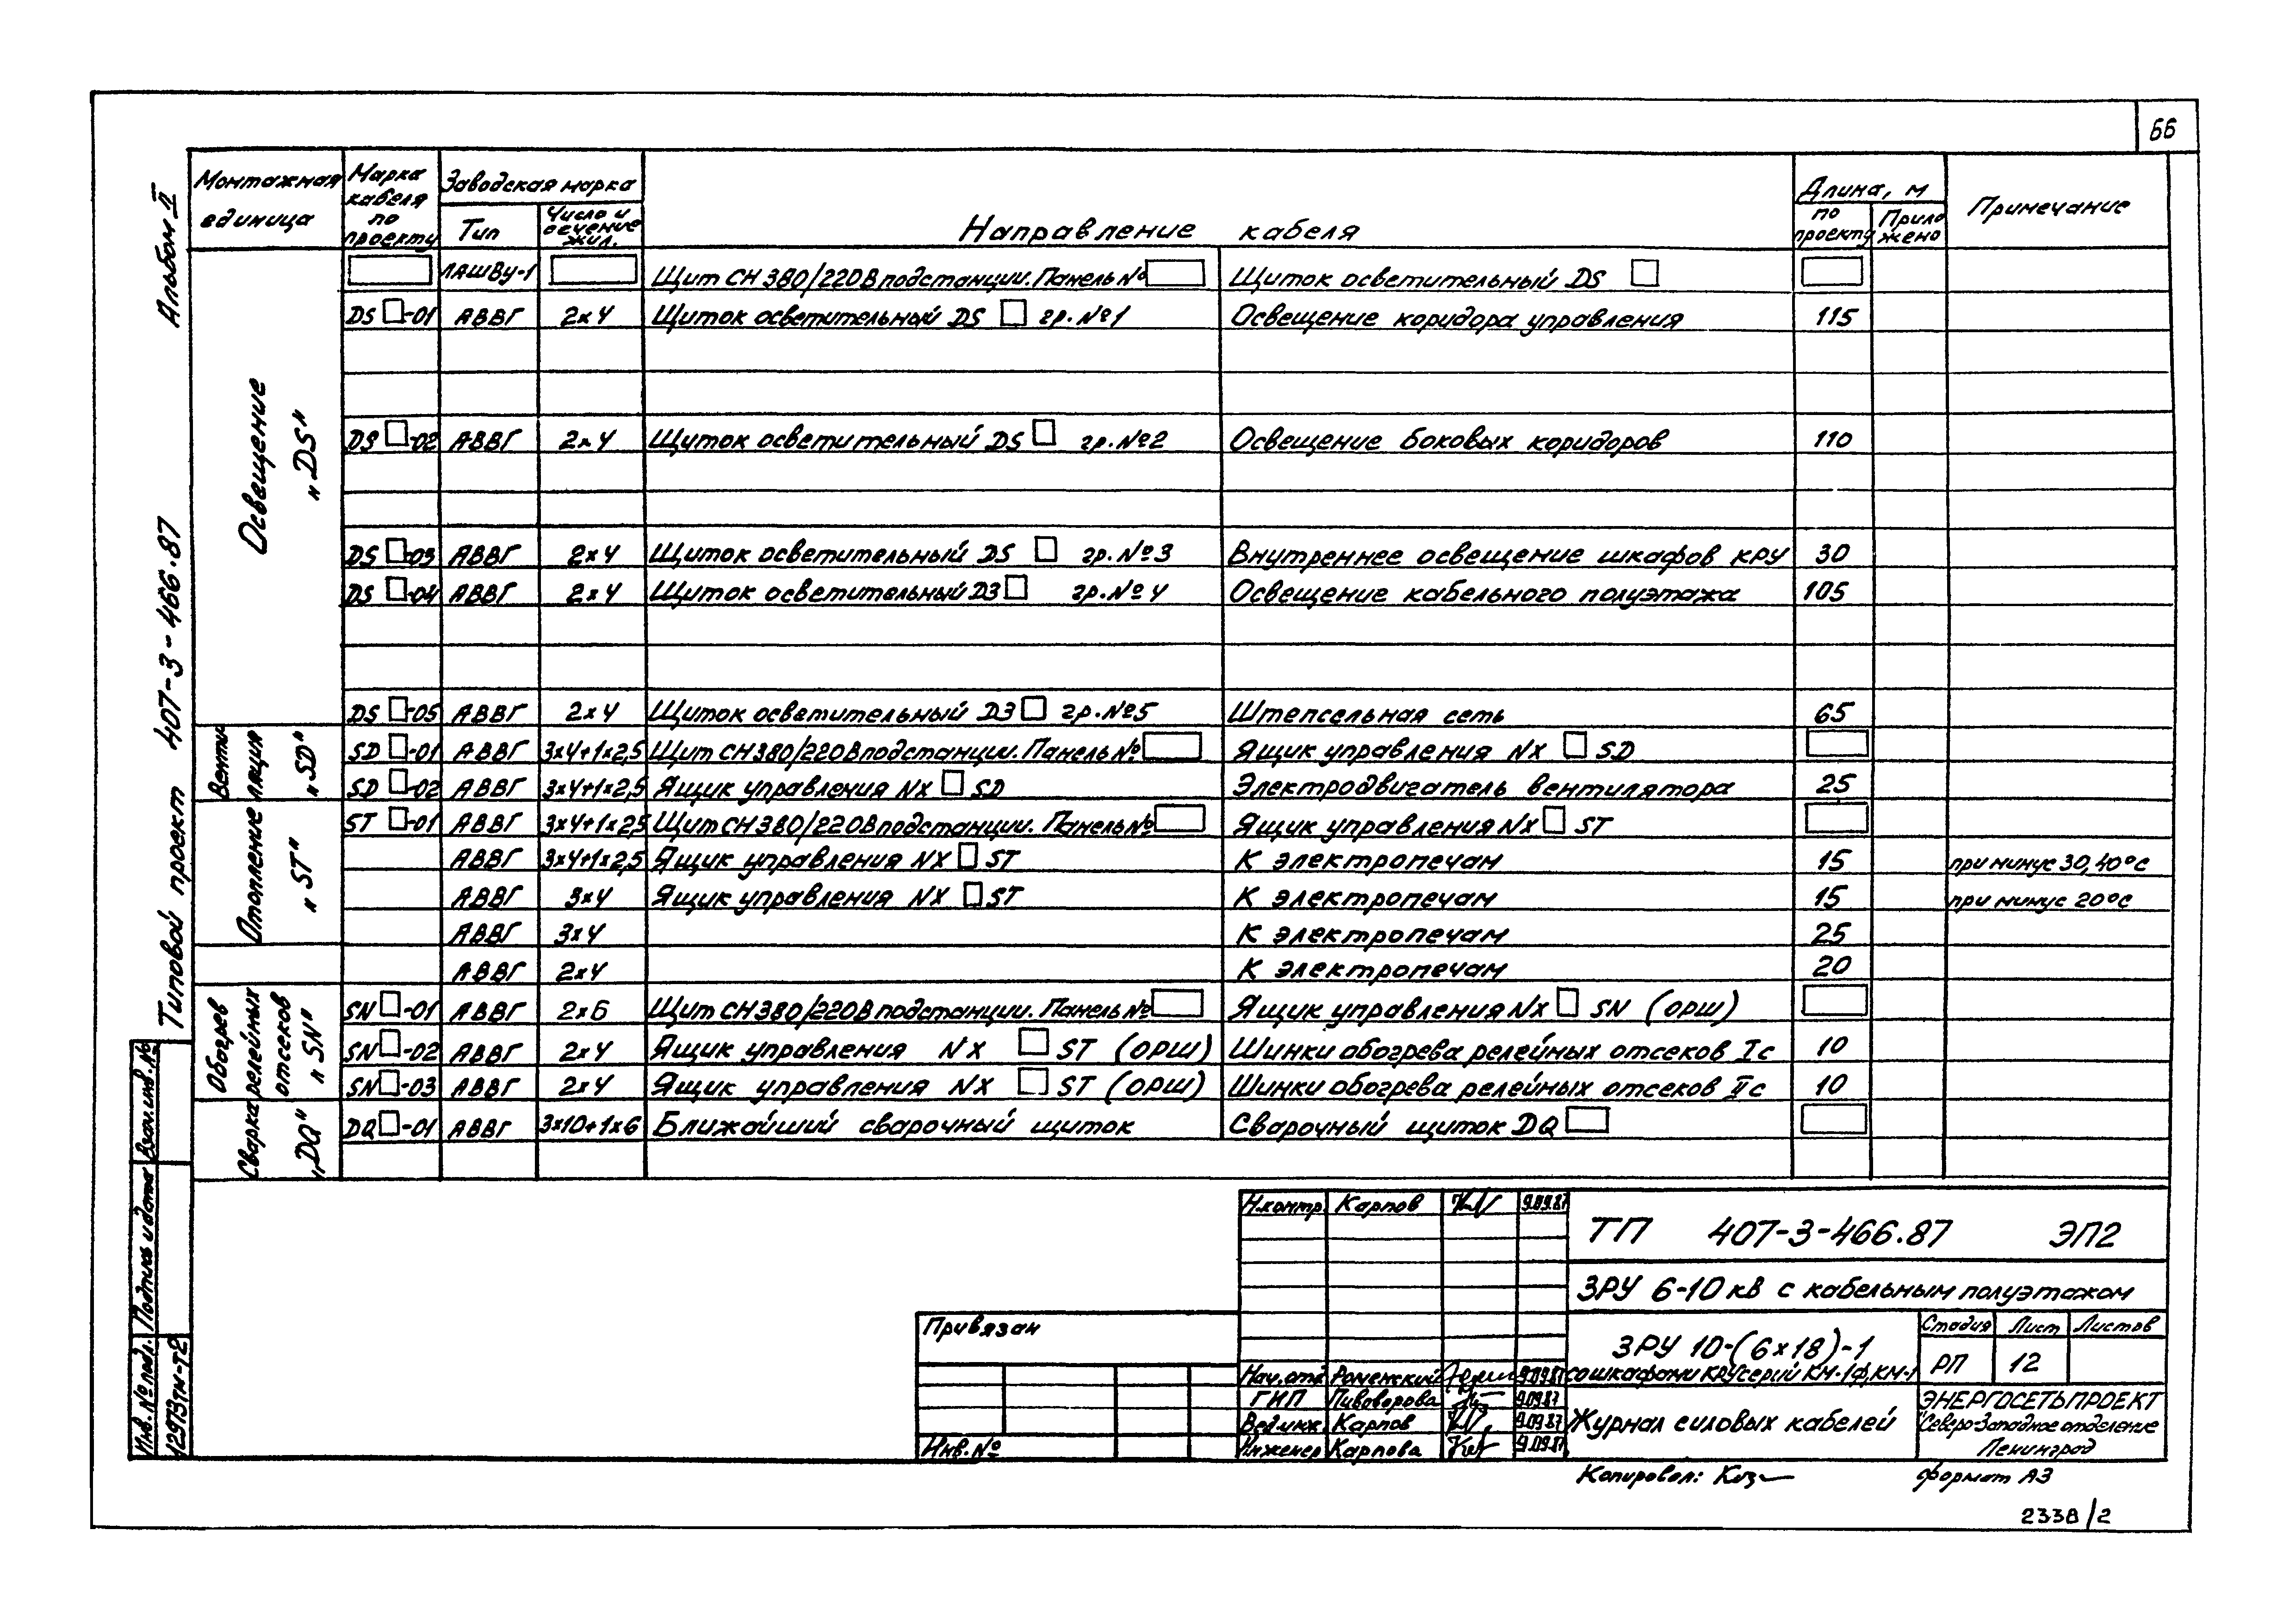 66
Альбом II
Типовой проект 407-3-466.87
Монтажная единица
Марка кабеля по проекту
Заводская марка
Тип
Число и сечение жил.
Направление кабеля
Длина, м
по проекту
Проложено
Примечание
Освещение „DS"
ЛАШВу-1 Щит СН 380/220В подстанции. Панель № Щиток осветительный DS
DS -01 АВВГ 2х4 Щиток осветительный DS гр. №1 Освещение коридора управления 115
DS -02 АВВГ 2х4 Щиток осветительный DS гр. №2 Освещение боковых коридоров 110
DS -03 АВВГ 2х4 Щиток осветительный DS гр. №3 Внутреннее освещение шкафов КРУ 30
DS -04 АВВГ 2х4 Щиток осветительный DЗ гр. №4 Освещение кабельного полуэтажа 105
DS -05 АВВГ 2х4 Щиток осветительный DЗ гр. №5 Штепсельная сеть 65
Вентиляция „SD"
SD -01 АВВГ 3х4+1х2,5 Щит СН 380/220В подстанции. Панель № Ящик управления NX SD
SD -02 АВВГ 3х4+1х2,5 Ящик управления NX SD Электродвигатель вентилятора 25
Отопление „ST"
ST -01 АВВГ 3х4+1х2,5 Щит СН 380/220В подстанции. Панель № Ящик управления NX ST
АВВГ 3х4+1х2,5 Ящик управления NX ST К электропечам 15 при минус 30,40°С
АВВГ 3х4 Ящик управления NX ST К электропечам 15 при минус 20°С
АВВГ 3х4 К электропечам 25
АВВГ 2х4 К электропечам 20
Обогрев релейных отсеков „SN"
SN -01 АВВГ 2х6 Щит СН 380/220В подстанции. Панель № Ящик управления NX SN (ОРШ)
SN -02 АВВГ 2х4 Ящик управления NX ST (ОРШ) Шинки обогрева релейных отсеков Iс 10
SN -03 АВВГ 2х4 Ящик управления NX ST (ОРШ) Шинки обогрева релейных отсеков IIс 10
Сварка „DQ"
DQ -01 АВВГ 3х10+1х6 Ближайший сварочный щиток Сварочный щиток DQ
Взам.инв.№
Подпись и дата
Инв. № подл.
12973тм-т2
Привязан
Инв. №
Н.контр. Карпов 9.09.87
Нач.отд Роменский 9.09.87
ГИП Пивоворова 9.09.87
Вед.инж. Карпов 9.09.87
Инженер Карпова 9.09.87
ТП 407-3-466.87 ЭП2
ЗРУ 6-10 кВ с кабельным полуэтажом
ЗРУ 10-(6х18)-1
со шкафами КРУ серий КМ-1Ф, КМ-1
Стадия Лист Листов
РП 12
Журнал силовых кабелей
ЭНЕРГОСЕТЬПРОЕКТ
Северо-Западное отделение
Ленинград
Копировал: формат А3
2338/2